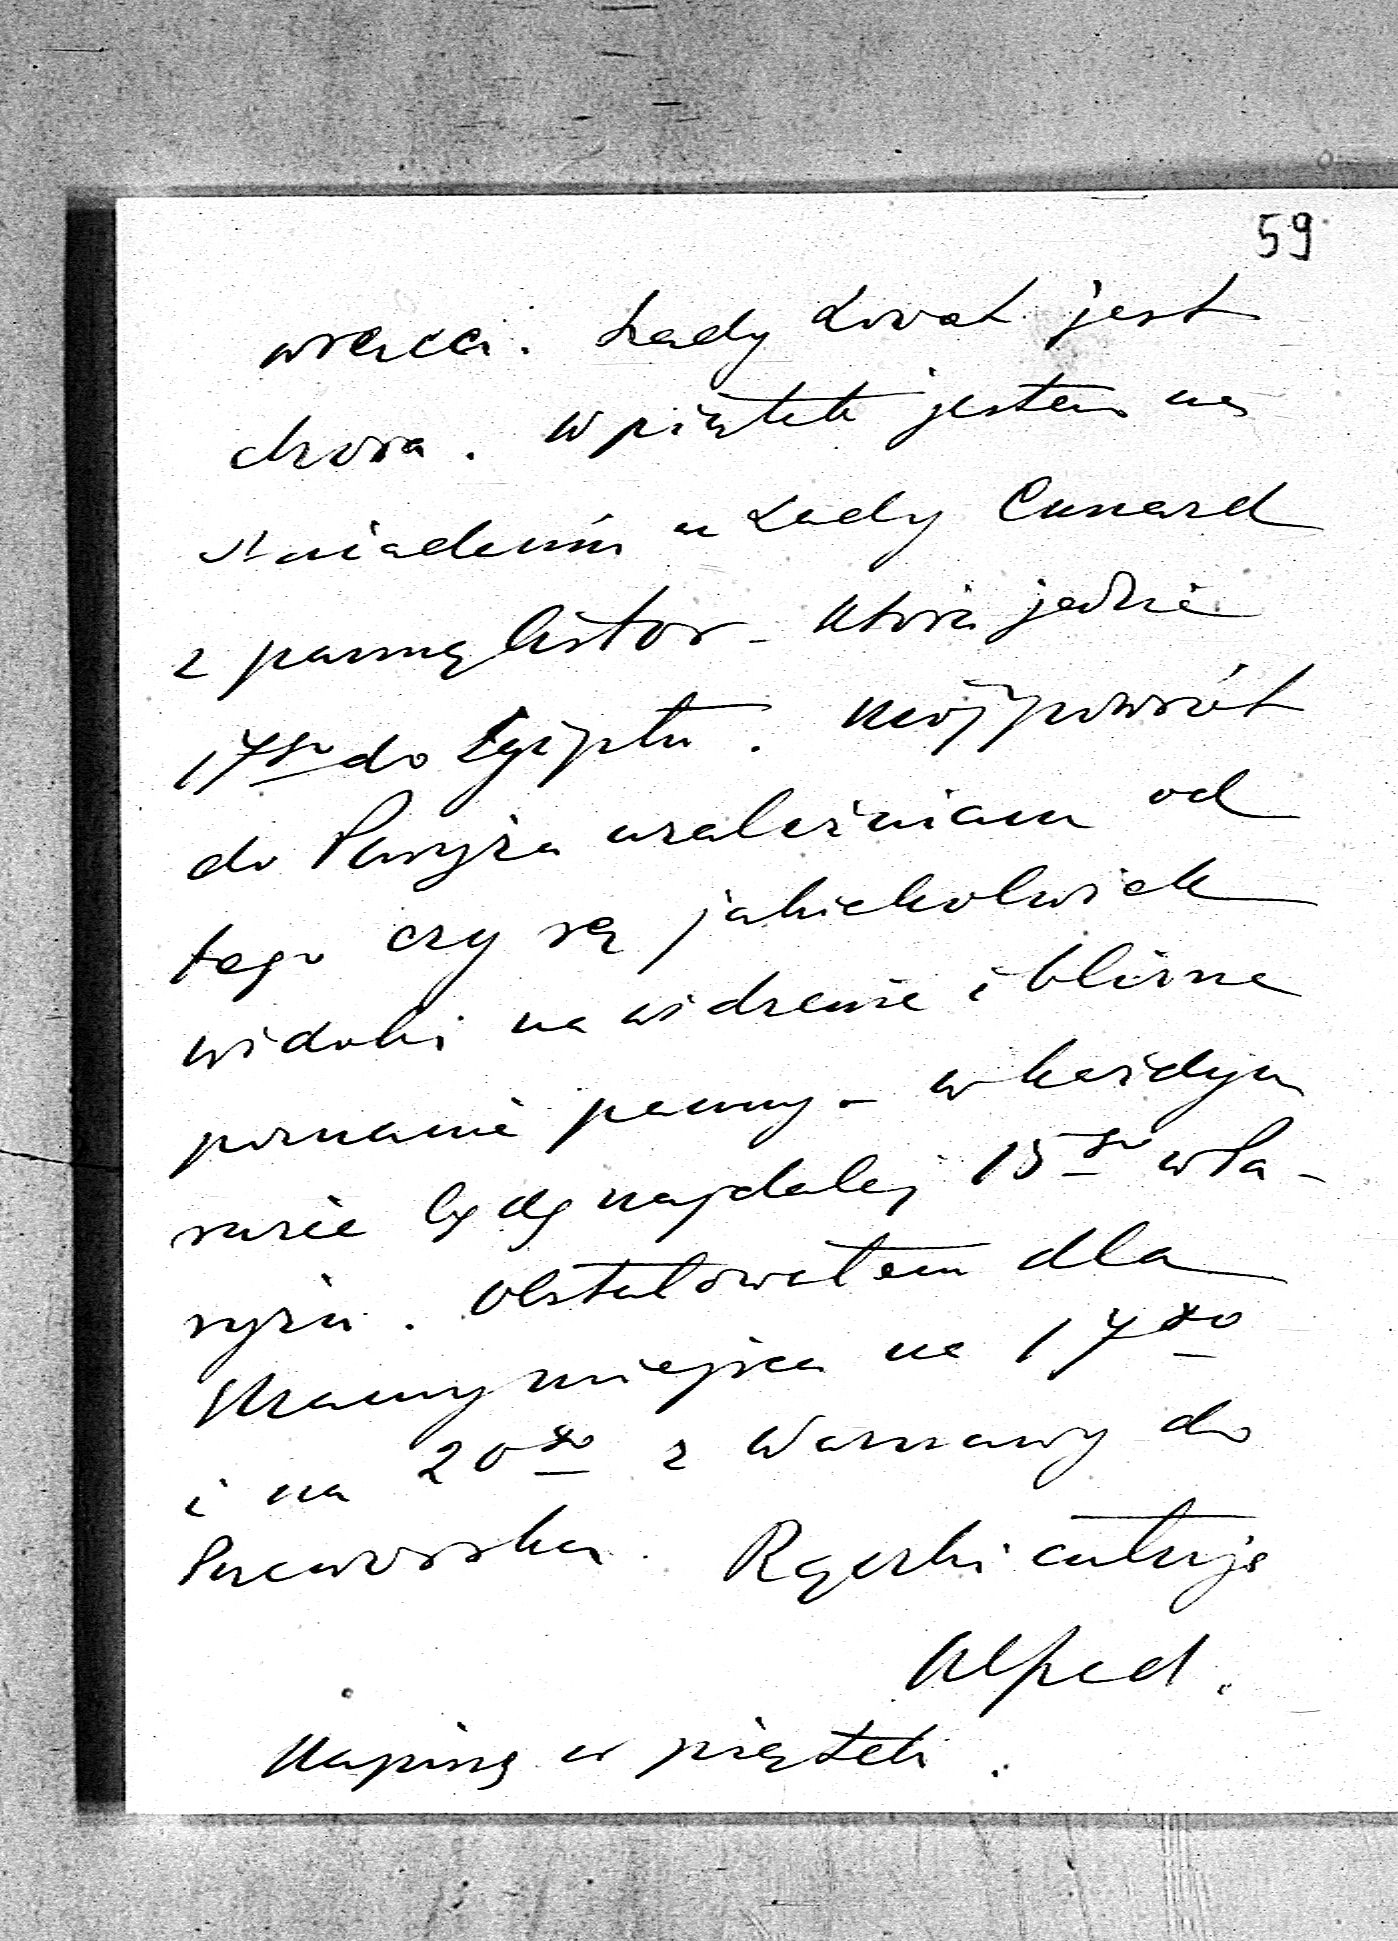 59
wraca. Lady Lovat jest
chora. W piątek jestem na
śniadaniu u Lady Cunard
z panną Astor – która jedzie
17go do Egiptu. Mój powrót
do Paryża uzależniam od
tego czy są jakiekolwiek
widoki na widzenie i bliższe
poznanie panny – w każdym
razie będę najdalej 15go w Pa-
ryżu. Obstalowałem dla
Mamy miejsca na 17go
i na 20go z Warszawy do
Przeworska. Rączki całuję
Alfred.
Napiszę w piątek.